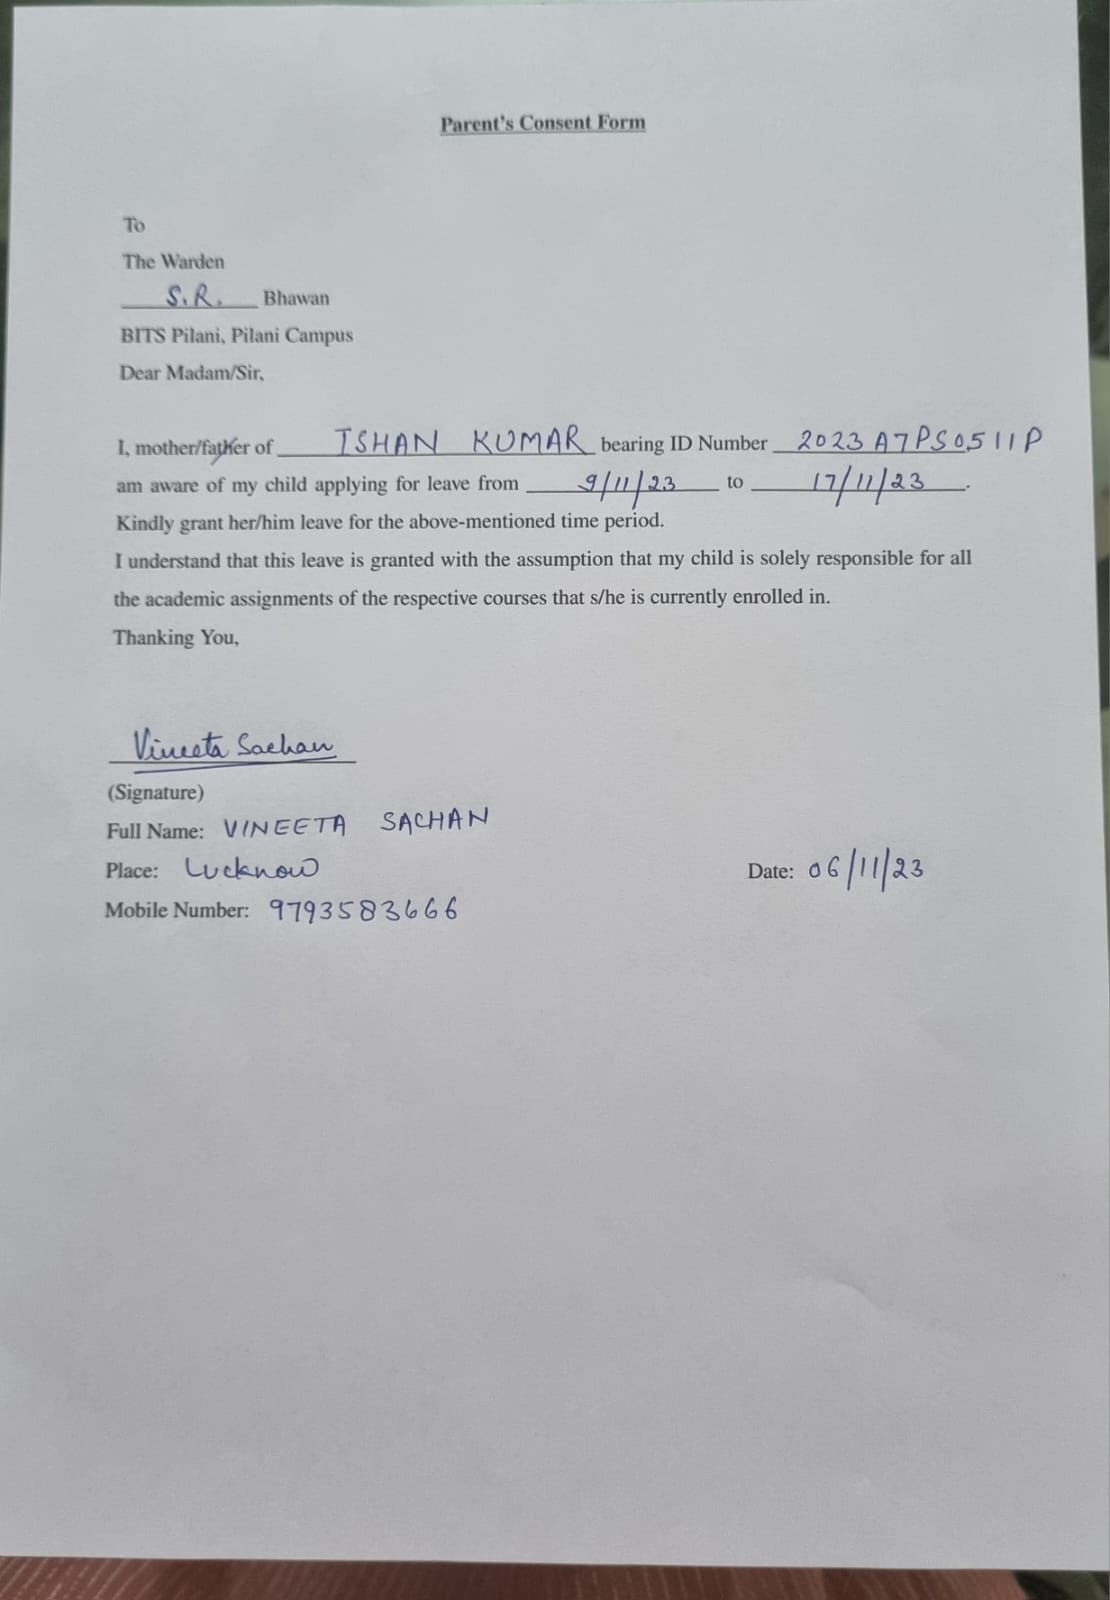 Parent's Consent Form
To
The Warden
S.R. Bhawan
BITS Pilani, Pilani Campus
Dear Madam/Sir,
I, mother/father of ISHAN KUMAR bearing ID Number 2023A7PS0511P
am aware of my child applying for leave from 9/11/23 to 17/11/23.
Kindly grant her/him leave for the above-mentioned time period.
I understand that this leave is granted with the assumption that my child is solely responsible for all
the academic assignments of the respective courses that s/he is currently enrolled in.
Thanking You,
Vineeta Sachan
(Signature)
Full Name: VINEETA SACHAN
Place: Lucknow Date: 06/11/23
Mobile Number: 9793583666